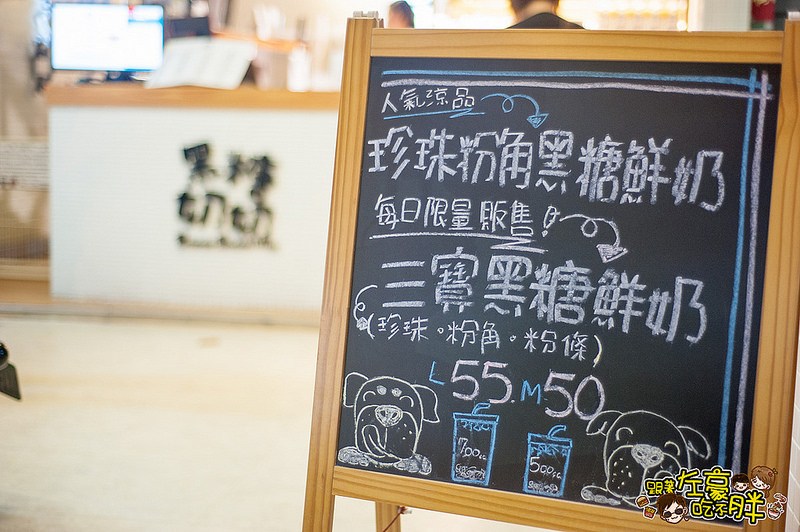 人氣涼品
珍珠粉角黑糖鮮奶
每日限量販售!
三寶黑糖鮮奶
(珍珠。粉角。粉條)
L 55. M 50
700cc
500cc
黑糖
奶奶
跟著左豪吃不胖